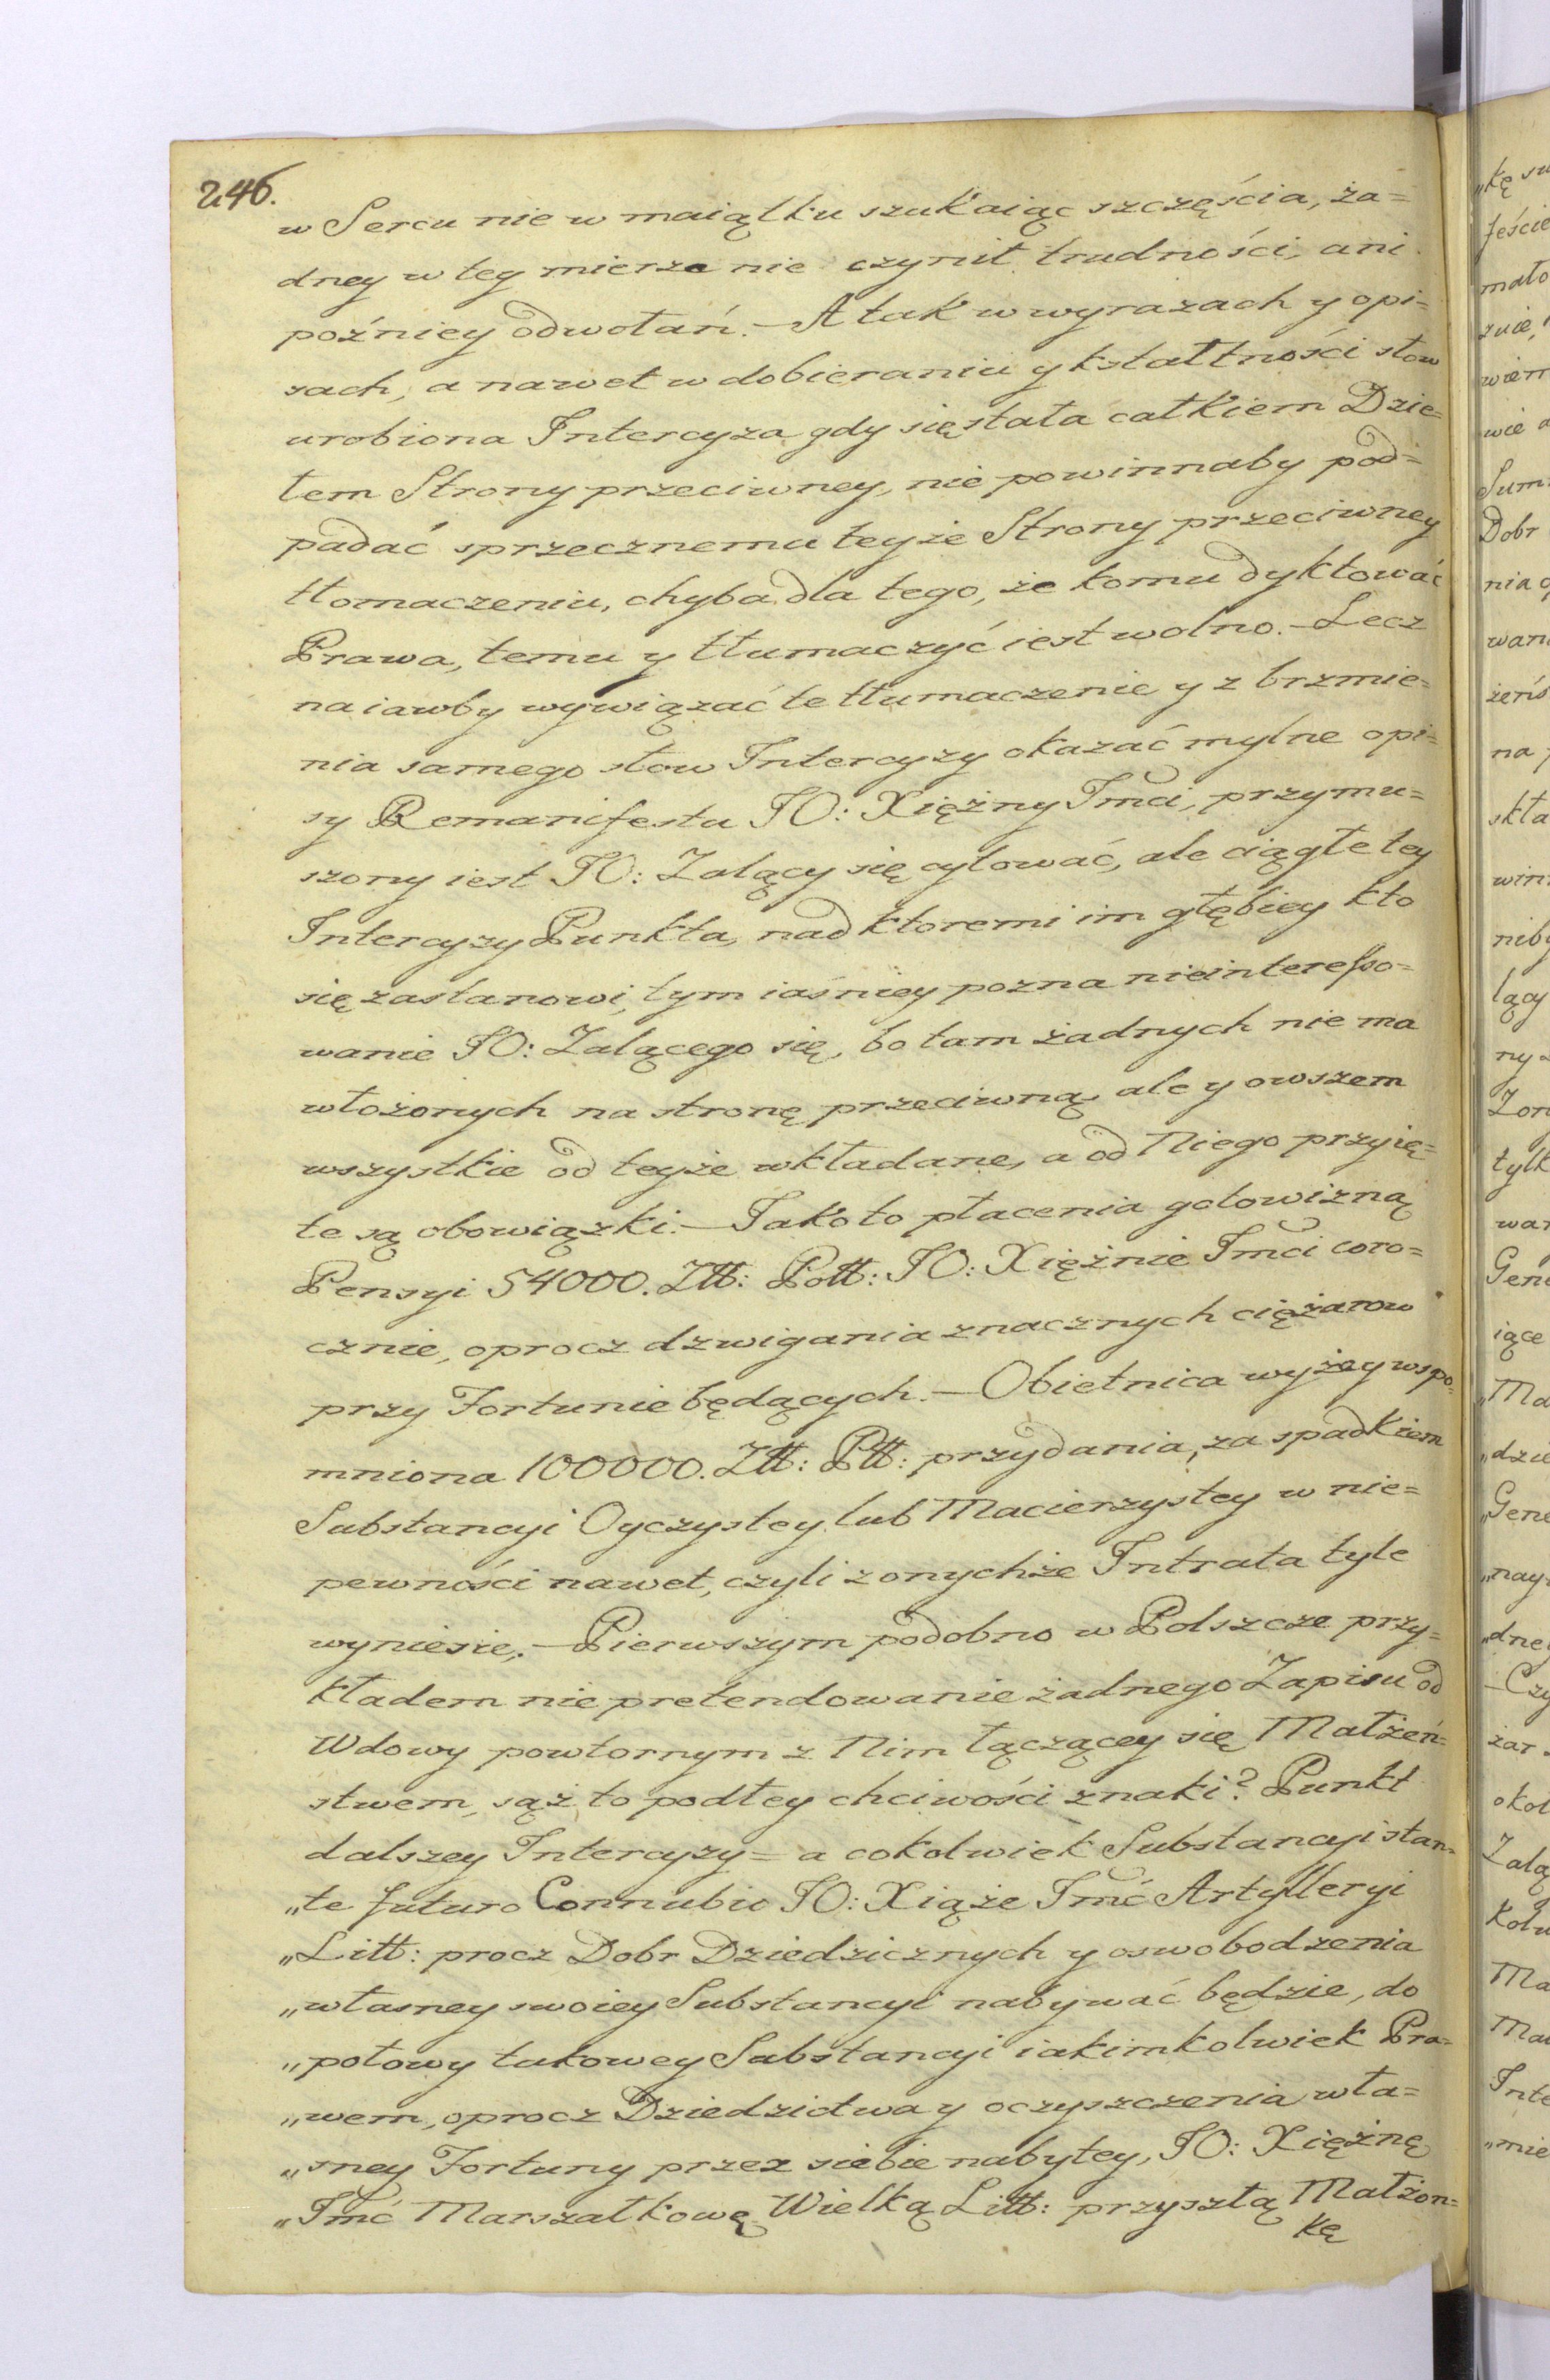 246.
w Sercu nie w maiątku szukaiąc szczęścia, ża=
dney w tey mierze nie czynił trudności, ani
poźniey odwołań. — A tak w wyrazach y opi=
sach, a nawet w dobieraniu y kstałtności słow
urobiona Intercyza gdy się stała całkiem Dzie=
łem Strony przeciwney, nie powinnaby pod=
padać sprzecznemu teyże Strony przeciwney
tłomaczeniu, chyba dla tego, że komu dyktować
Prawa, temu y tłumaczyć iest wolno. — Lecz
na iawby wywiązać te tłumaczenie y z brzmie=
nia samego słow Intercyzy okazać mylne opi=
sy Remanifestu JO: Xiężny Jmci, przymu=
szony iest JO: Żalący się cytować, ale ciągłe tey
Intercyzy Punkta, nad ktoremi im głębiey kto
się zastanowi, tym iaśniey pozna nieinteresso=
wanie JO: Żalącego się, bo tam żadnych nie ma
włożonych na stronę przeciwną, ale y owszem
wszystkie od teyże wkładane, a od Niego przyię=
te są obowiązki. — Jako to płacenia gotowizną
Pensyi 54000. Złł: Poll: JO: Xiężnie Jmci coro=
cznie, oprocz dzwigania znacznych ciężarow
przy Fortunie będących. — Obietnica wyżey wspo=
mniona 100000. Złł: Pll: przydania, za spadkiem
Substancyi Oyczystey lub Macierzystey w nie=
pewności nawet, czyli z onychże Intrata tyle
wyniesie. — Pierwszym podobno w Polszcze przy=
kładem nie pretendowanie żadnego Zapisu od
Wdowy powtornym z Nim łączącey się Małżeń=
stwem, sąż to podłey chciwości znaki? Punkt
dalszey Intercyzy = a cokolwiek Substancyi stan=
„te futuro Connubio JO: Xiąże Jmć Artylleryi
„Litt: procz Dobr Dziedzicznych y oswobodzenia
„własney swoiey Substancyi nabywać będzie, do
„połowy takowey Substancyi iakimkolwiek Pra=
„wem, oprocz Dziedzictwa y oczyszczenia wła=
„sney Fortuny przez siebie nabytey, JO: Xiężnę
„Jmć Marszałkowę Wielką Litt: przyszłą Małżon=
kę